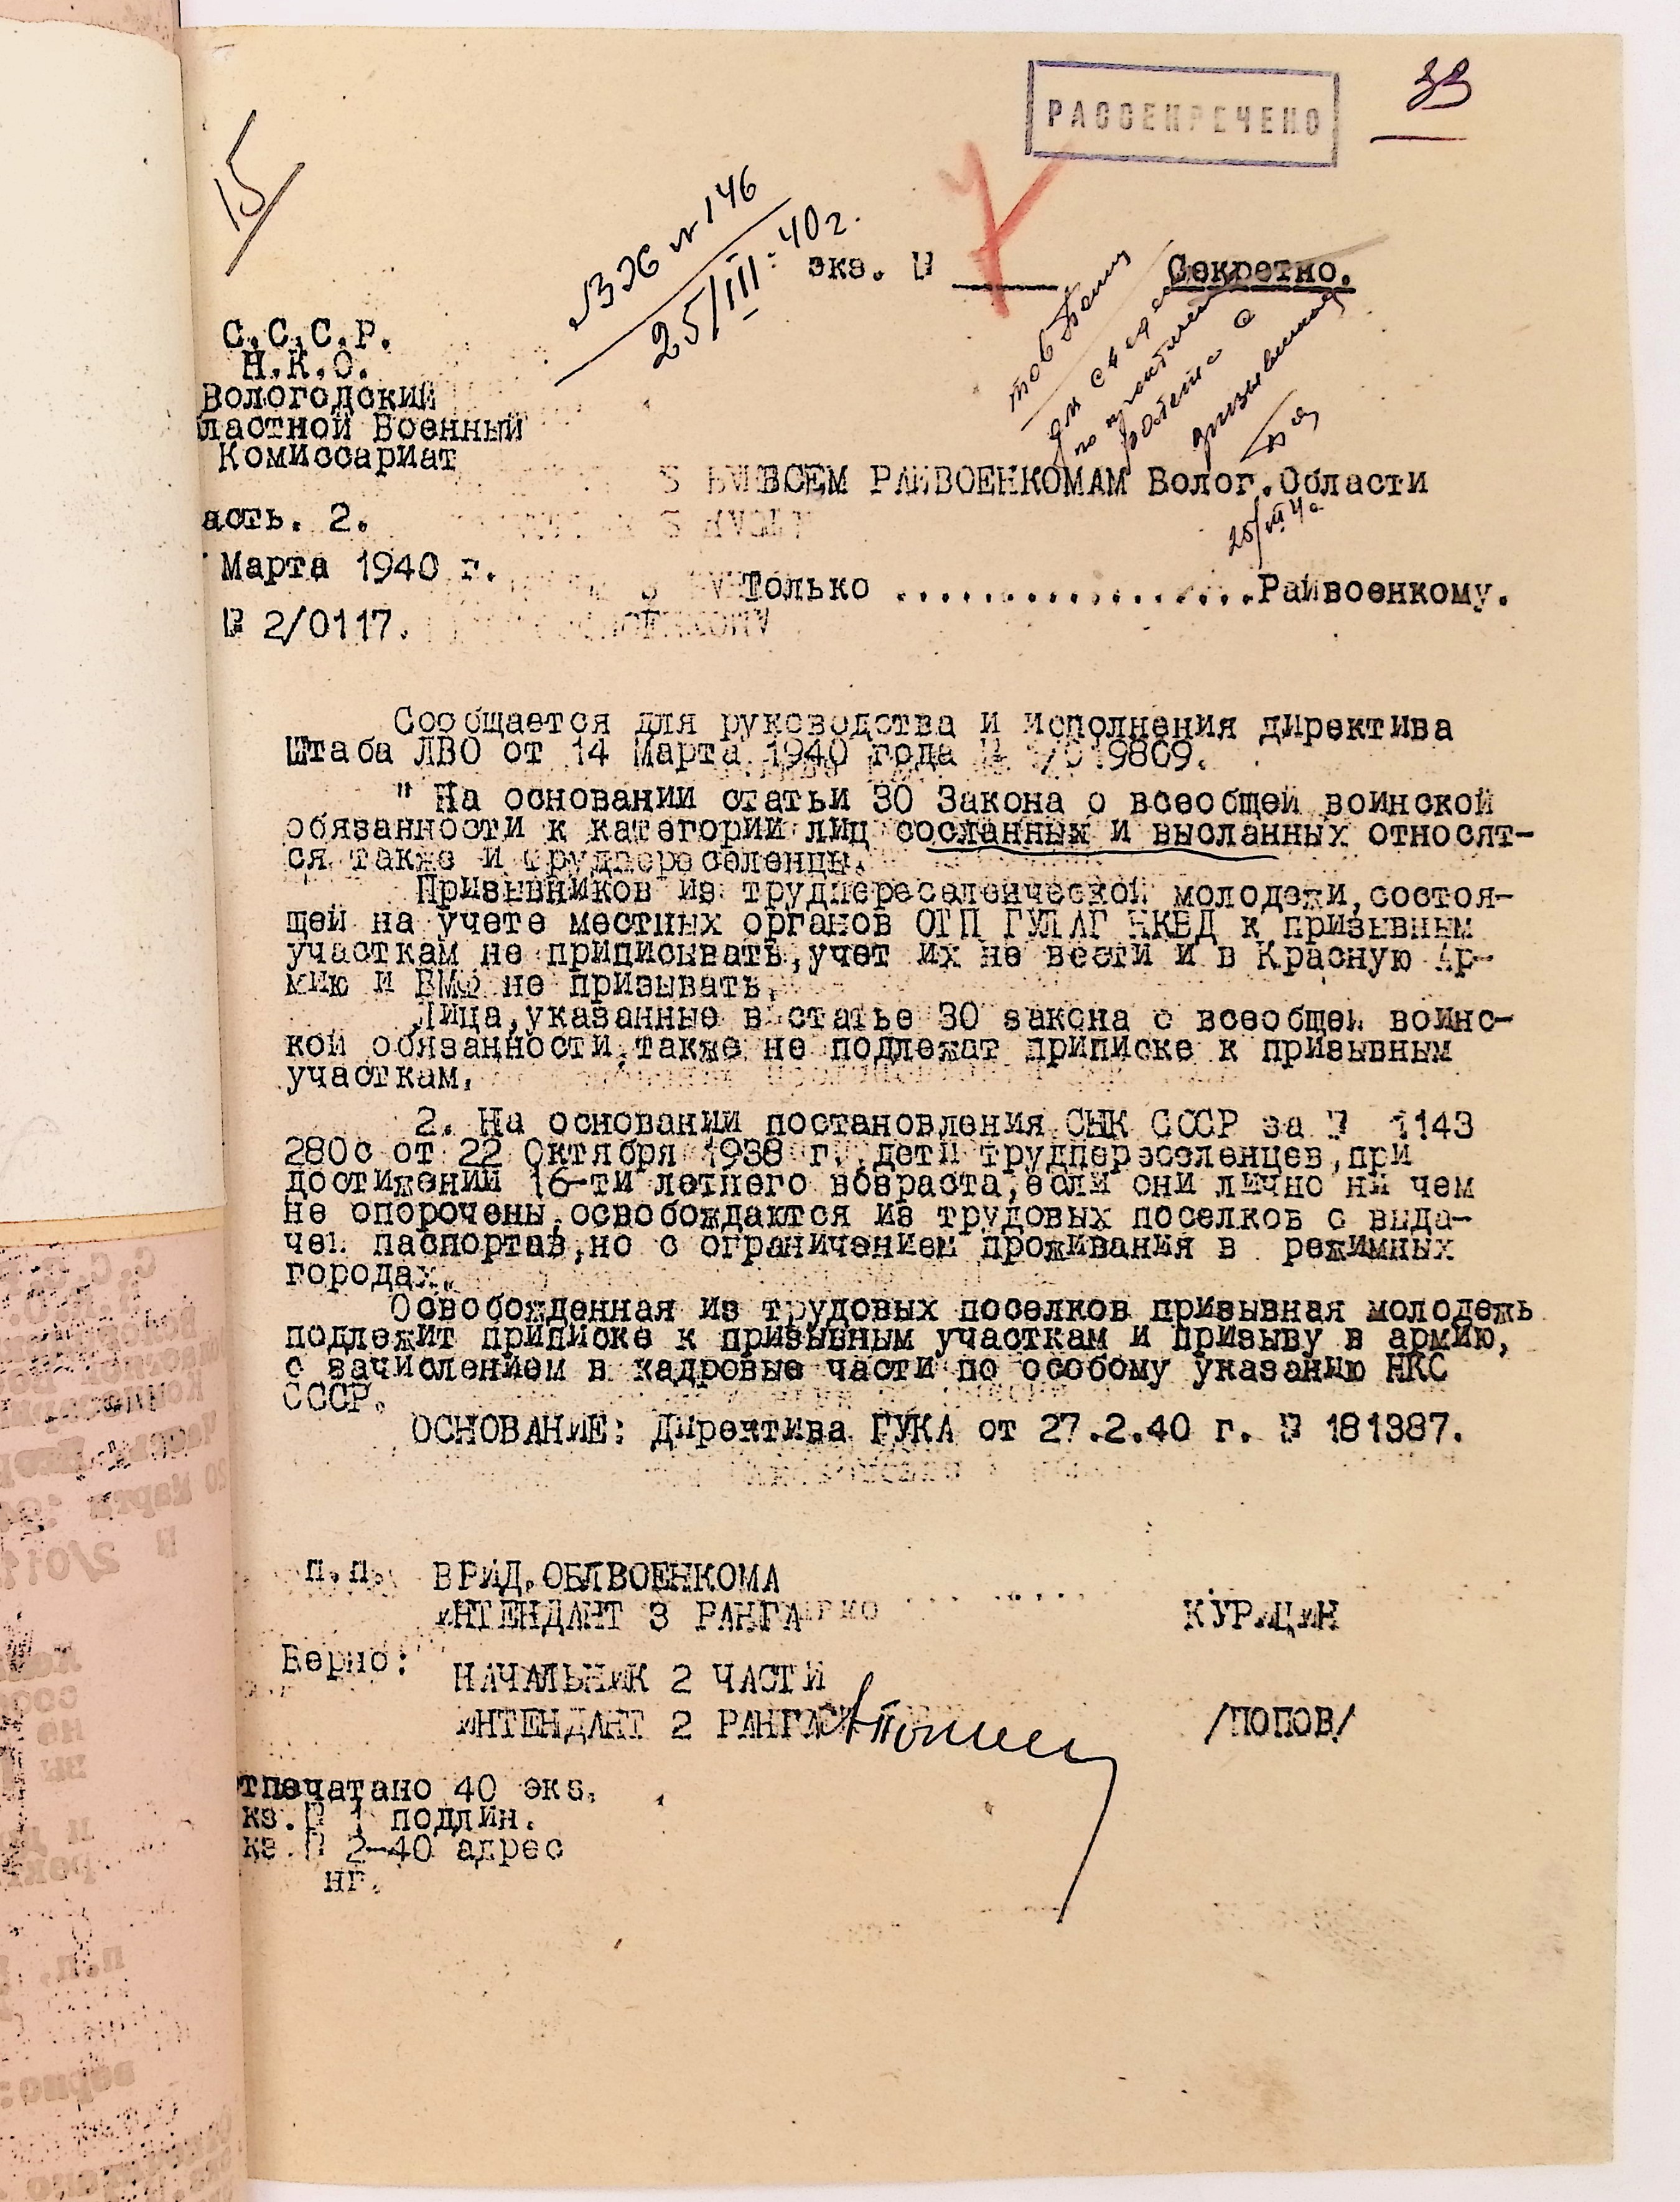 РАССЕКРЕЧЕНО
33
15
Вх № 146
25/III-40г.
экз. №
Секретно.
С.С.С.Р.
Н.К.О.
Вологодский
ластной Военный
Комиссариат
асть. 2.
Марта 1940 г.
№ 2/0117.
ВСЕМ РАЙВОЕНКОМАМ Волог.Области
25/III 40
Только ..................Райвоенкому.
Сообщается для руководства и исполнения директива
Штаба ЛВО от 14 Марта 1940 года №
" На основании статьи 30 Закона о всеобщей воинской
обязанности к категории лиц сосланных и высланных относят-
ся также и трудпереселенцы.
Призывников из трудпереселенческой молодежи,состоя-
щей на учете местных органов ОТП ГУЛАГ НКВД к призывным
участкам не приписывать,учет их не вести и в Красную Ар-
мию и ВМФ не призывать.
Лица,указанные в статье 30 закона о всеобщей воинс-
кой обязанности,также не подлежат приписке к призывным
участкам.
2. На основании постановления СНК СССР за № 1143
280с от 22 Октября 1938 г. дети трудпереселенцев,при
достижении 16-ти летнего возраста,если они лично ни чем
не опорочены,освобождаются из трудовых поселков с выда-
чей паспортов,но с ограничением проживания в режимных
городах.
Освобожденная из трудовых поселков призывная молодежь
подлежит приписке к призывным участкам и призыву в армию,
с зачислением в кадровые части по особому указанию НКС
СССР.
ОСНОВАНИЕ: Директива ГУКА от 27.2.40 г. № 181387.
п.п. ВРИД.ОБЛВОЕНКОМА
ИНТЕНДАНТ 3 РАНГА КУРИЦИН
Верно:
НАЧАЛЬНИК 2 ЧАСТИ
ИНТЕНДАНТ 2 РАНГА /ПОПОВ/
отпечатано 40 экз.
кз.№ 1 подлин.
кз.№ 2-40 адрес
нг.